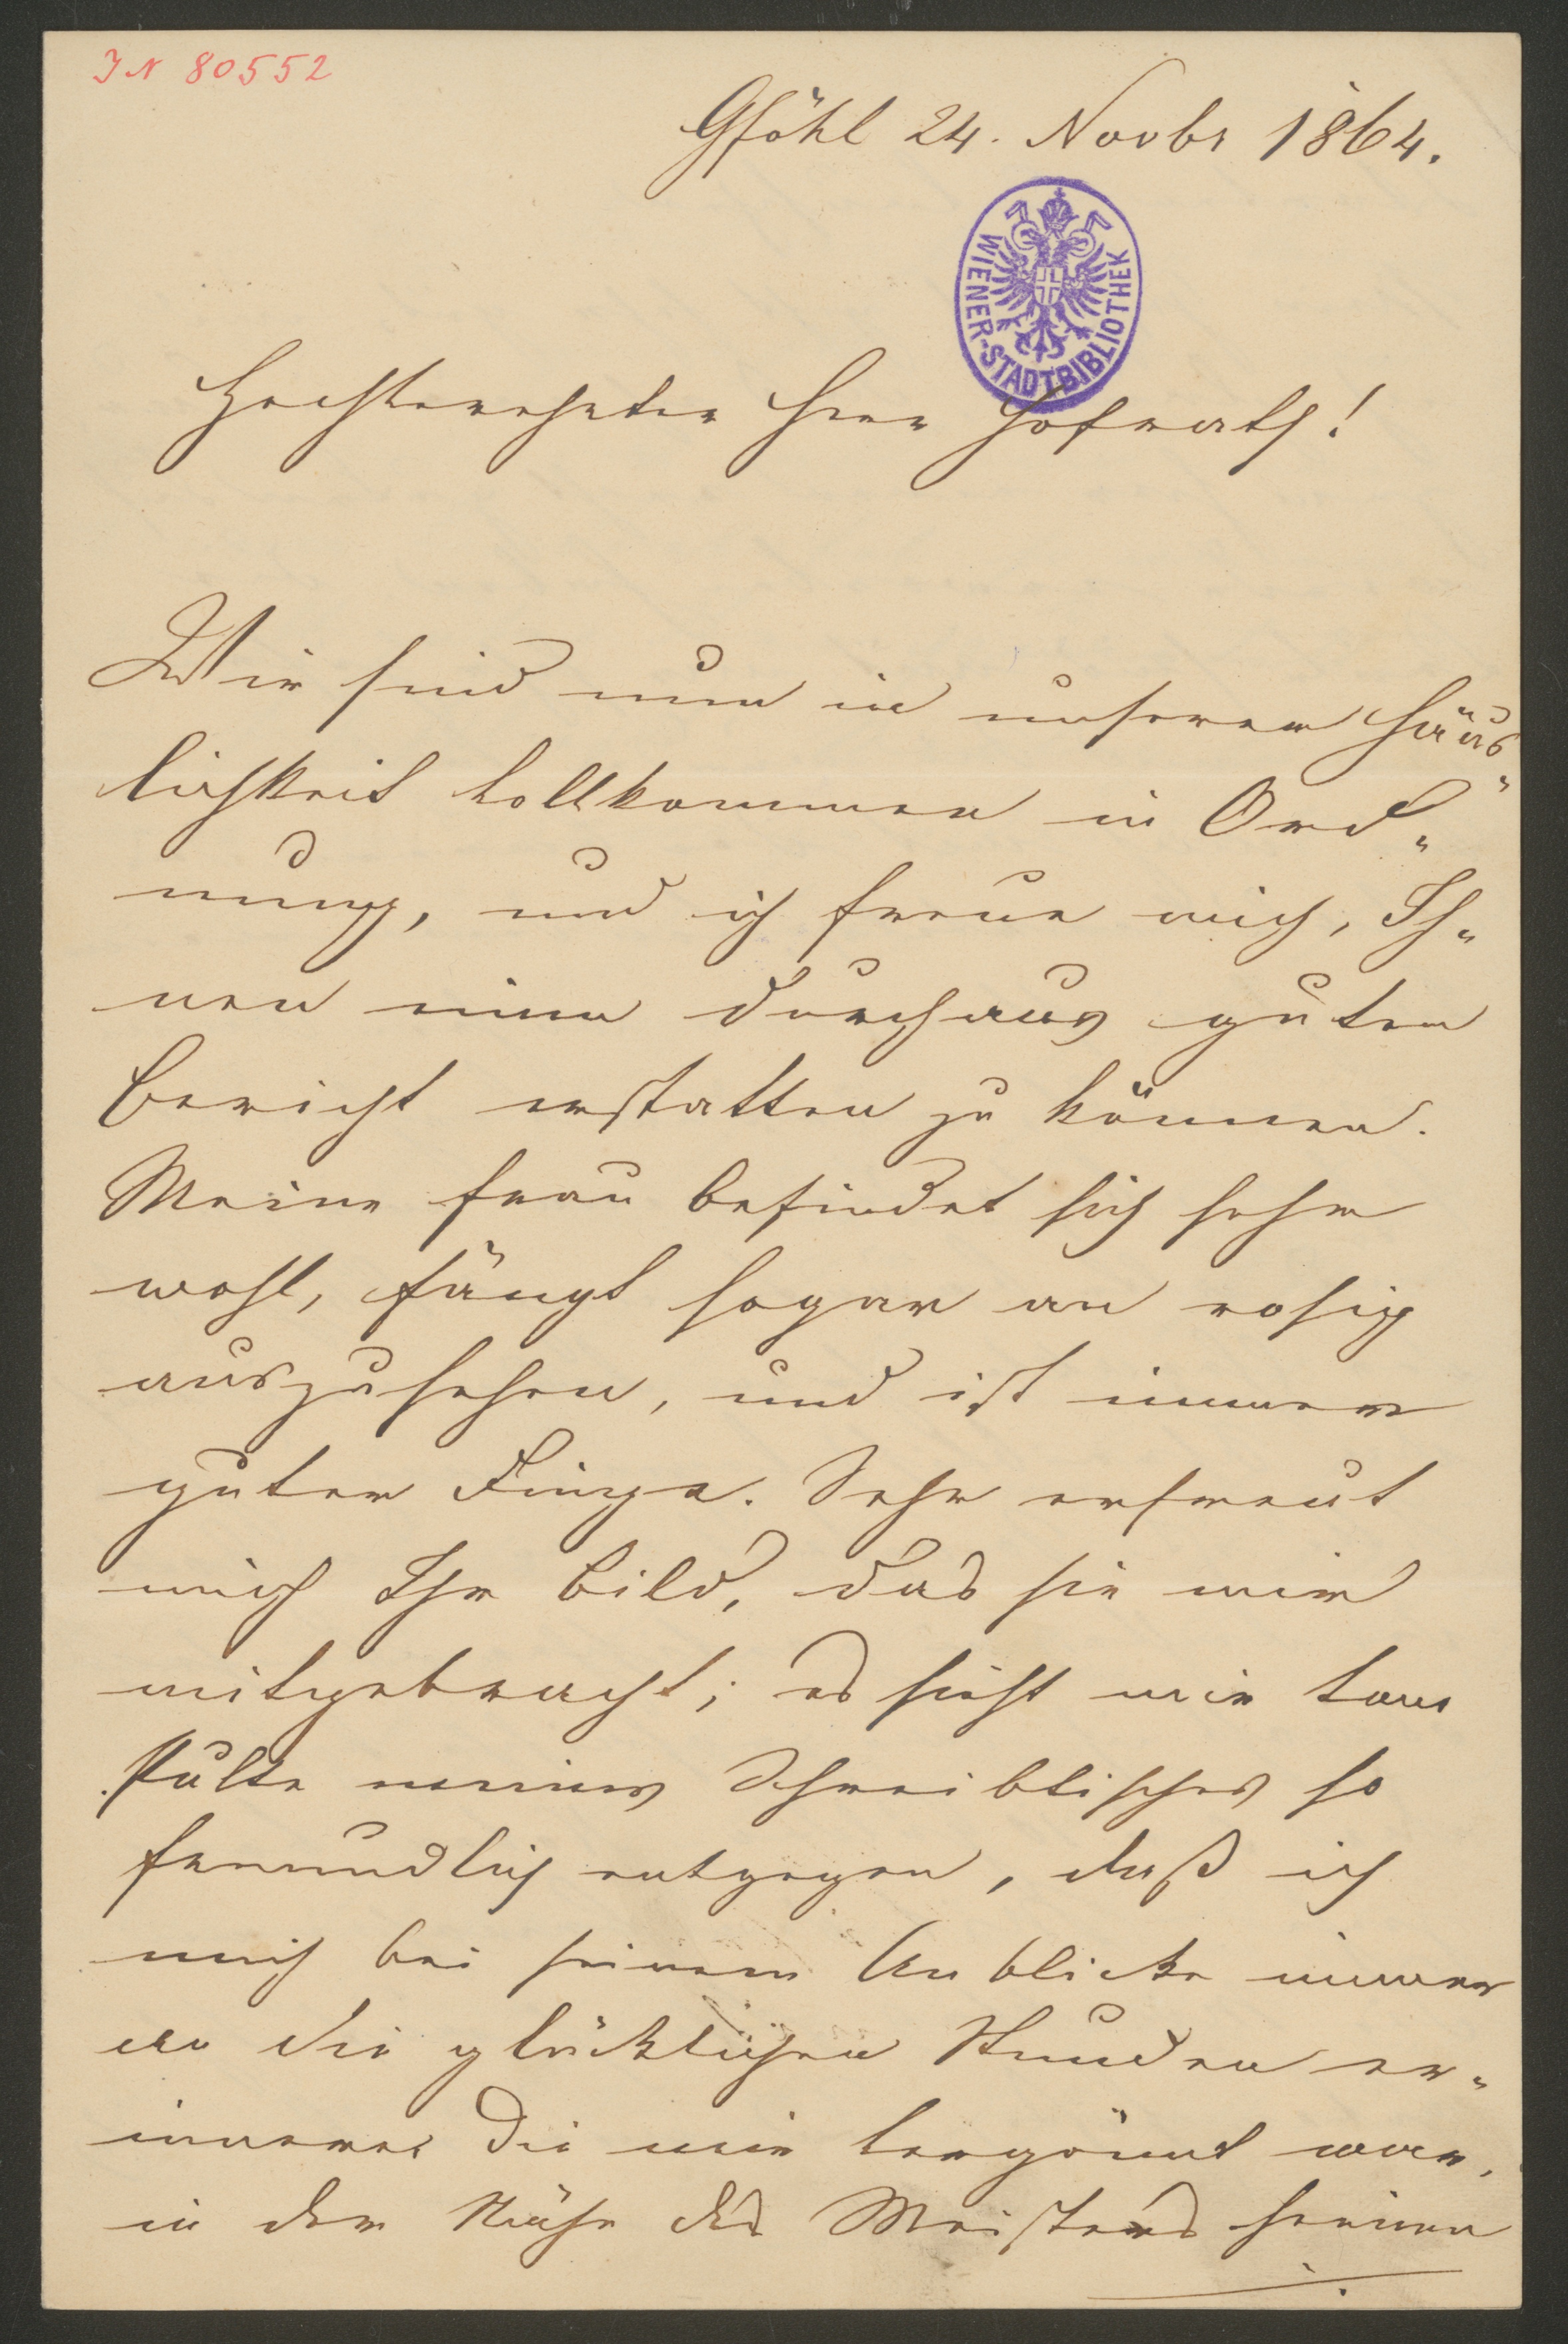 IN 80552
Gföhl 24. Novbr 1864.
WIENER-STADTBIBLIOTHEK
Hochverehrter Herr Hofrath!
Wir sind nun in unserer Häus„
lichkeit vollkommen in Ord„
nung, und ich freue mich, Ih„
nen einen durchaus guten
Bericht erstatten zu können.
Meine Frau befindet sich sehr
wohl, fängt sogar an rosig
auszusehen, und ist immer
guter Dinge. Sehr erfreut
mich Ihr Bild, das sie mir
mitgebracht; es sieht mir vom
Pulte meines Schreibtisches so
freundlich entgegen, daß ich
mich bei seinem Anblicke immer
an die glücklichen Stunden er„
innere, die mir vergönnt war,
in der Nähe des Meisters seinen